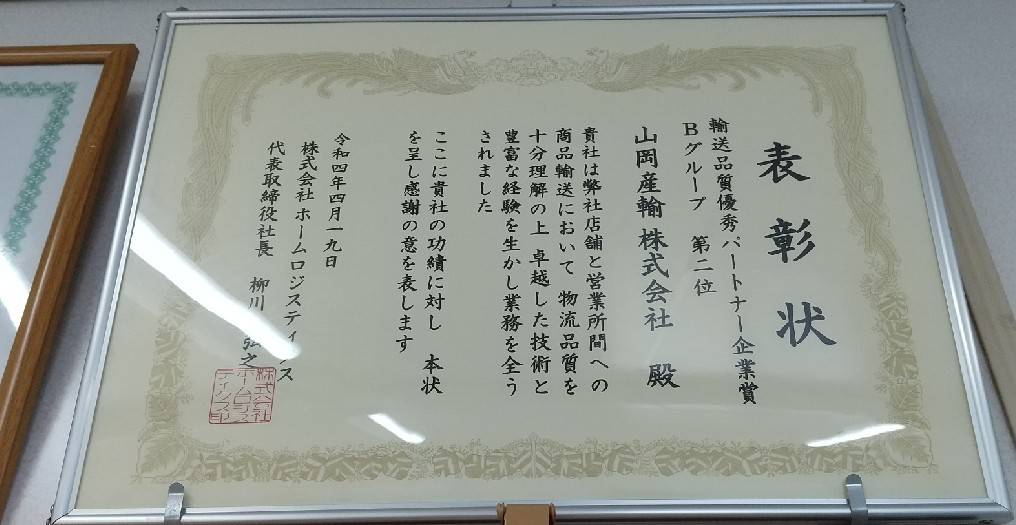 表彰状
輸送品質優秀パートナー企業賞
Bグループ 第二位
山岡産輸株式会社 殿
貴社は弊社店舗と営業所間への
商品輸送において 物流品質を
十分理解の上 卓越した技術と
豊富な経験を生かし業務を全う
されました
ここに貴社の功績に対し 本状
を呈し感謝の意を表します
令和四年四月一九日
株式会社ホームロジスティクス
代表取締役社長 柳川 弘之